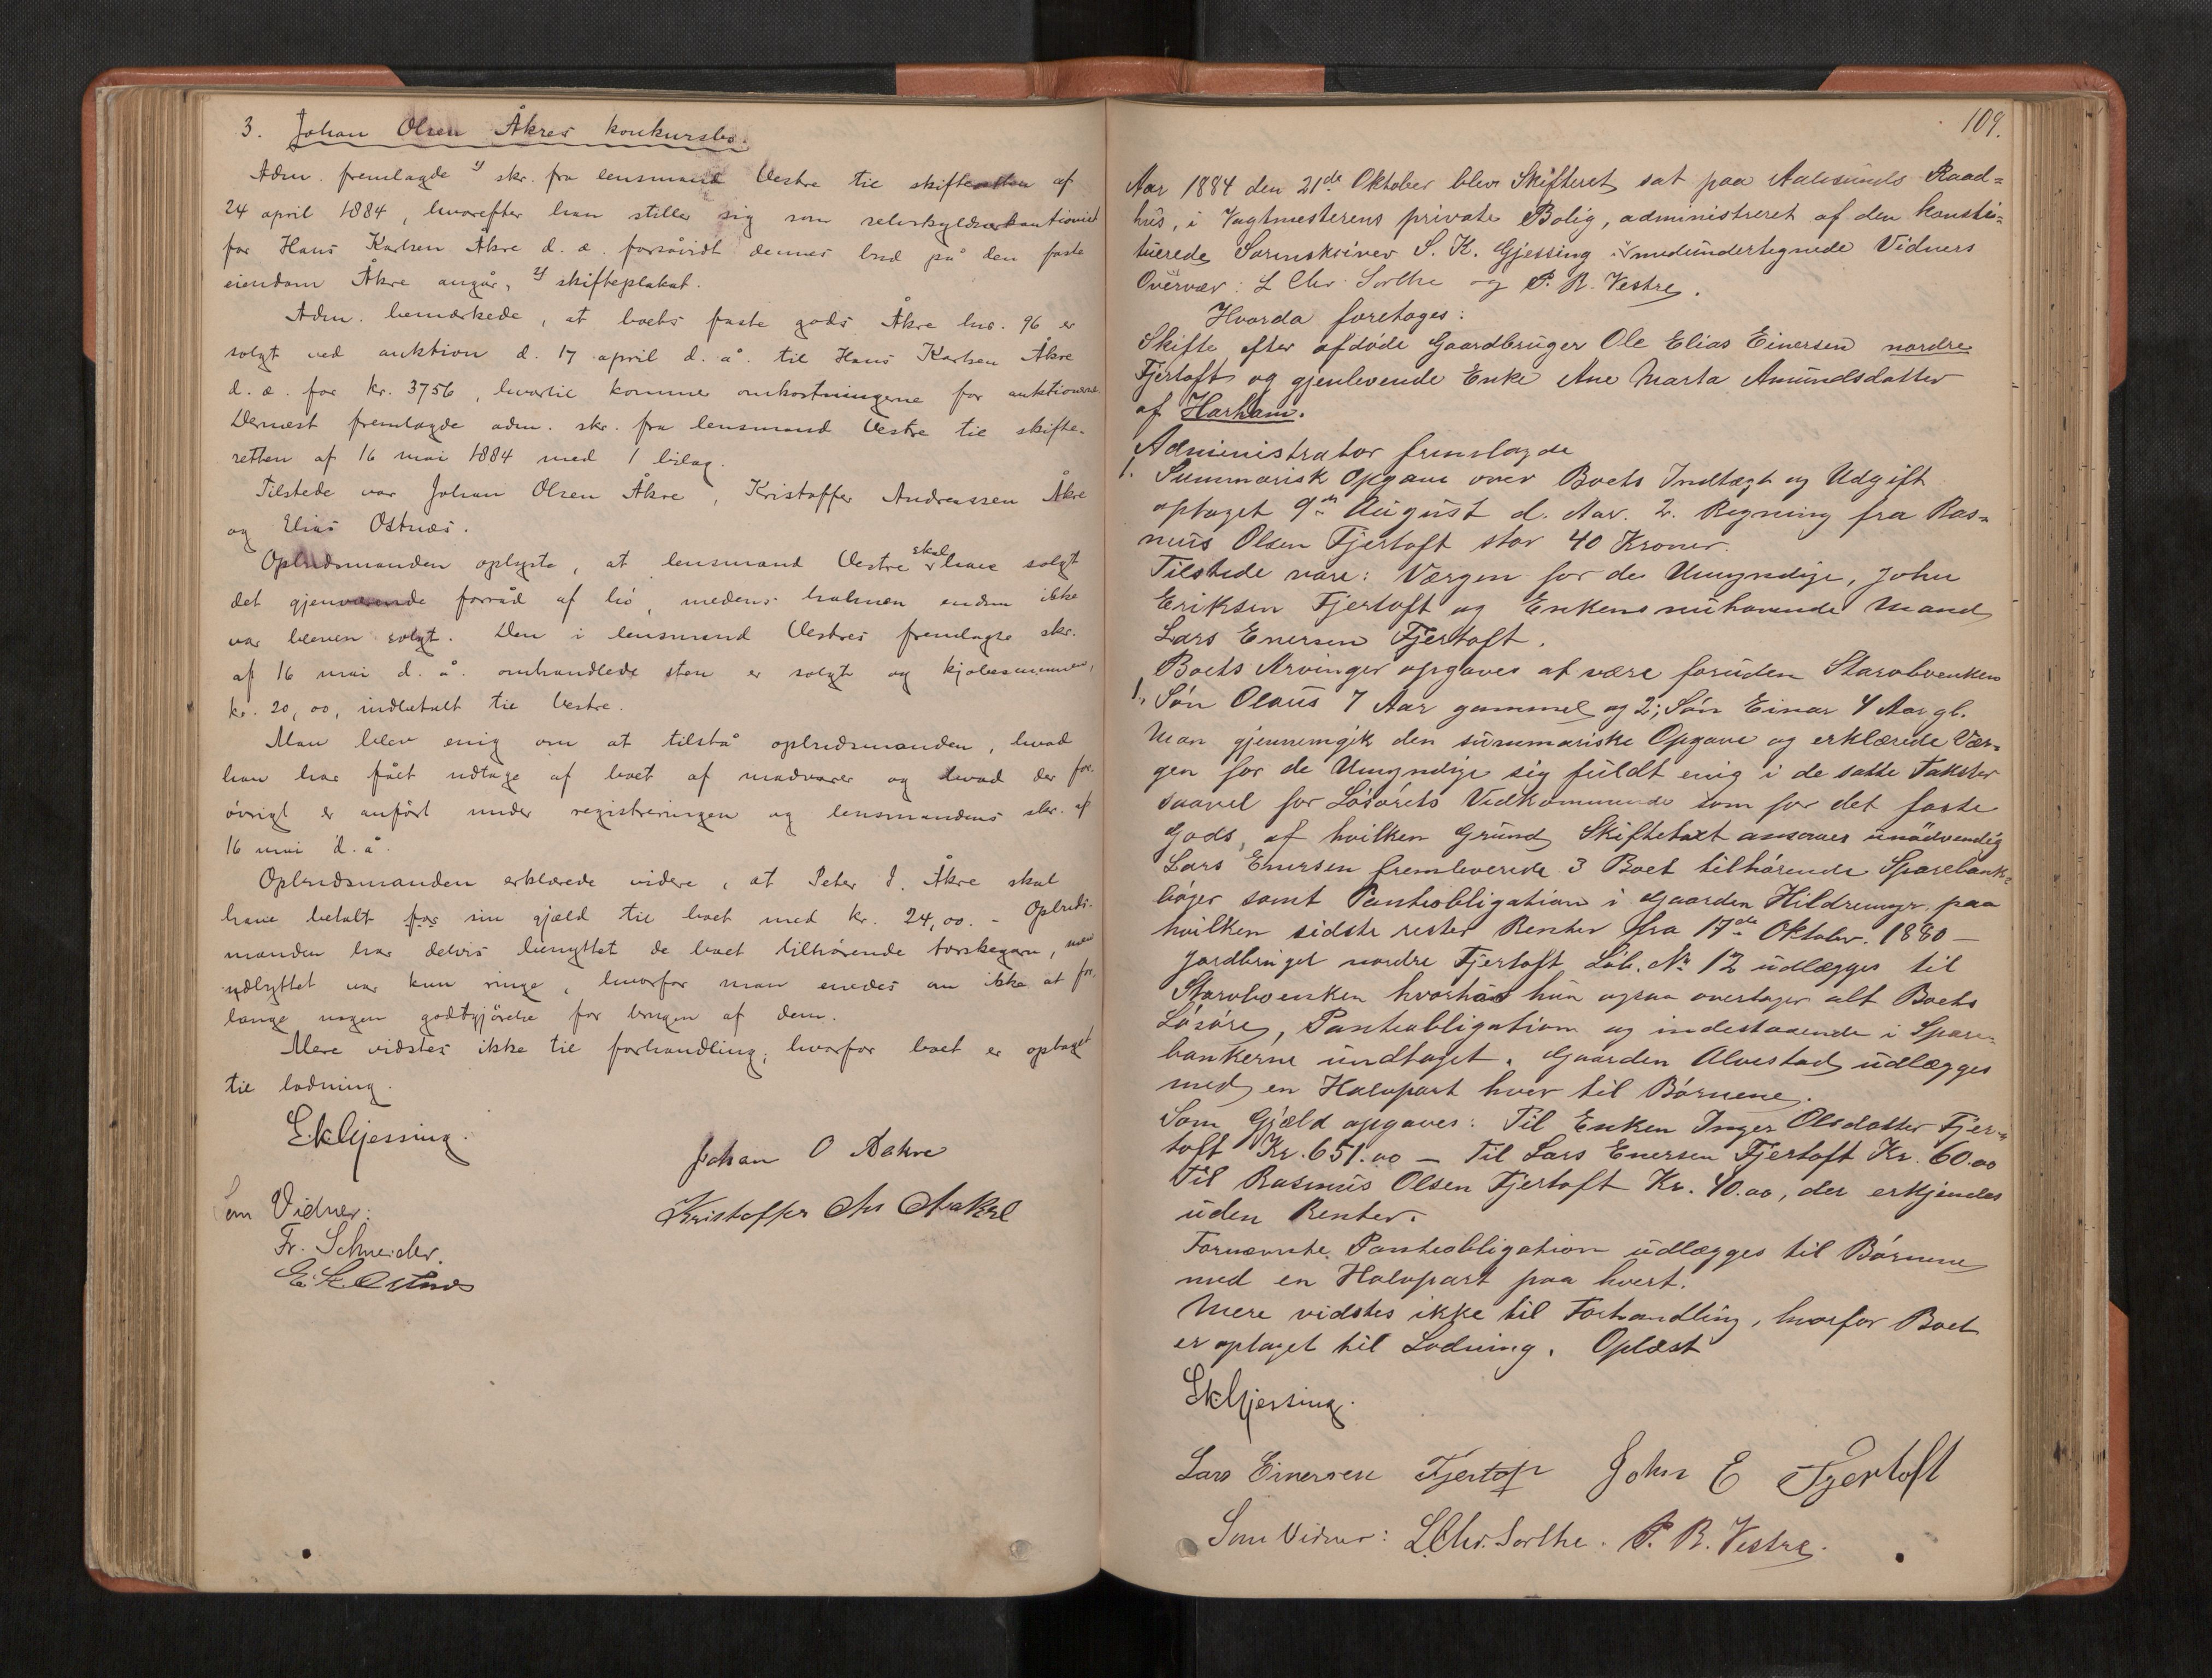 3. Johan Olsen Åkres konkursbo.
Adm. fremlagde 1) skr. fra lensmand Vestre til skifteretten af
24 april 1884, hvorefter han stiller sig som selvskyldnerkautionist
for Hans Karlsen Åkre d. æ. forsåvidt dennes bud på den faste
eiendom Åkre angår, 2) skifteplakat.
Adm. bemærkede, at boets faste gods Åkre lnr. 96 er
solgt ved auktion d. 17 april d. å. til Hans Karlsen Åkre
d. æ. for kr. 3756, hvortil kommer omkostningerne for auktionerne.
Dernæst fremlagde adm. skr. fra lensmand Vestre til skifte-
retten af 16 mai 1884 med 1 bilag.
Tilstede var Johan Olsen Åkre, Kristoffer Andreassen Åkre
og Elias Ostnæs.
Opbudsmanden oplyste, at lensmand Vestre skal have solgt
det gjenværende forråd af hö, medens halmen endnu ikke
var bleven solgt. Den i lensmand Vestres fremlagte skr.
af 16 mai d. å. omhandlede sten er solgt og kjøbesummen,
kr. 20,00, indbetalt til Vestre.
Man blev enig om at tilstå opbudsmanden, hvad
han har fået udtage af boet af madvarer og hvad der for-
övrigt er anfört under registreringen og lensmandens skr. af
16 mai d. å.
Opbudsmanden erklærede videre, at Peter I. Åkre skal
have betalt for sin gjæld til boet med kr. 24,00. - Opbuds-
manden har delvis benyttet de boet tilhörende torskegarn, men
udbyttet var kun ringe, hvorfor man enedes om ikke at for-
lange nogen godtgjörelse for brugen af dem.
Mere vidstes ikke til forhandling, hvorfor boet er optaget
til lodning.
S.K. Gjessing.
Johan O Aakre
Kristoffer An Aakre
Som Vidner:
Fr. Schneider.
E. K. Ostnæs
109.
Aar 1884 den 21de Oktober blev Skifteret sat paa Aalesunds Raad=
hus, i Vagtmesterens private Bolig, administreret af den konsti=
tuerede Sorenskriver S. K. Gjessing i medundertegnede Vidners
Overvær: L Chr. Sorthe og P. R. Vestre.
Hvorda foretoges:
Skifte efter afdöde Gaardbruger Ole Elias Einersen nordre
Fjertoft og gjenlevende Enke Ane Marta Amundsdatter
af Harham.
Administrator fremlagde
1. Summarisk Opgave over Boets Indtægt og Udgift
optaget 9de August d. Aar. 2. Regning fra Ras=
mus Olsen Fjertoft stor 40 Kroner.
Tilstede vare: Værgen for de Umyndige, John
Eriksen Fjertoft og Enkens nuhavende Mand
Lars Enersen Fjertoft.
Boets Arvinger opgaves at være foruden Stervboenken
1, Sön Olaus 7 Aar gammel og 2; Sön Einar 4 Aar gl.
Man gjennemgik den summariske Opgave og erklærede Vær=
gen for de Umyndige sig fuldt enig i de satte Takster
saavel for Lösörets Vedkommende som for det faste
Gods, af hvilken Grund Skiftetaxt ansaaes unödvendig
Lars Enersen fremleverede 3 Boet tilhörende Sparebank=
böger samt Panteobligation i Gaarden Hildremyr paa
hvilken sidste rester Renter fra 17de Oktober. 1880 —
Jordbruget nordre Fjertoft Löb. No 12 udlægges til
Stervboenken hvorhos hun ogsaa overtager alt Boets
Lösöre, Panteobligation og indestaaende i Spare=
bankerne undtaget. Gaarden Alvestad udlægges
med en Halvpart hver til Börnene.
Som Gjæld opgaves: Til Enken Inger Olsdatter Fjer=
toft Kr. 651.00 — Til Lars Enersen Fjertoft Kr. 60.00
Til Rasmus Olsen Fjertoft Kr. 40.00, der erkjendes
uden Renter.
Fornævnte Panteobligation udlægges til Börnene
med en Halvpart paa hvert.
Mere vidstes ikke til Forhandling, hvorfor Boet
er optaget til Lodning. Oplæst
S.K. Gjessing.
Lars Einersen Fjertoft John E Fjertoft
Som Vidner: L. Chr. Sorthe. P. R. Vestre.